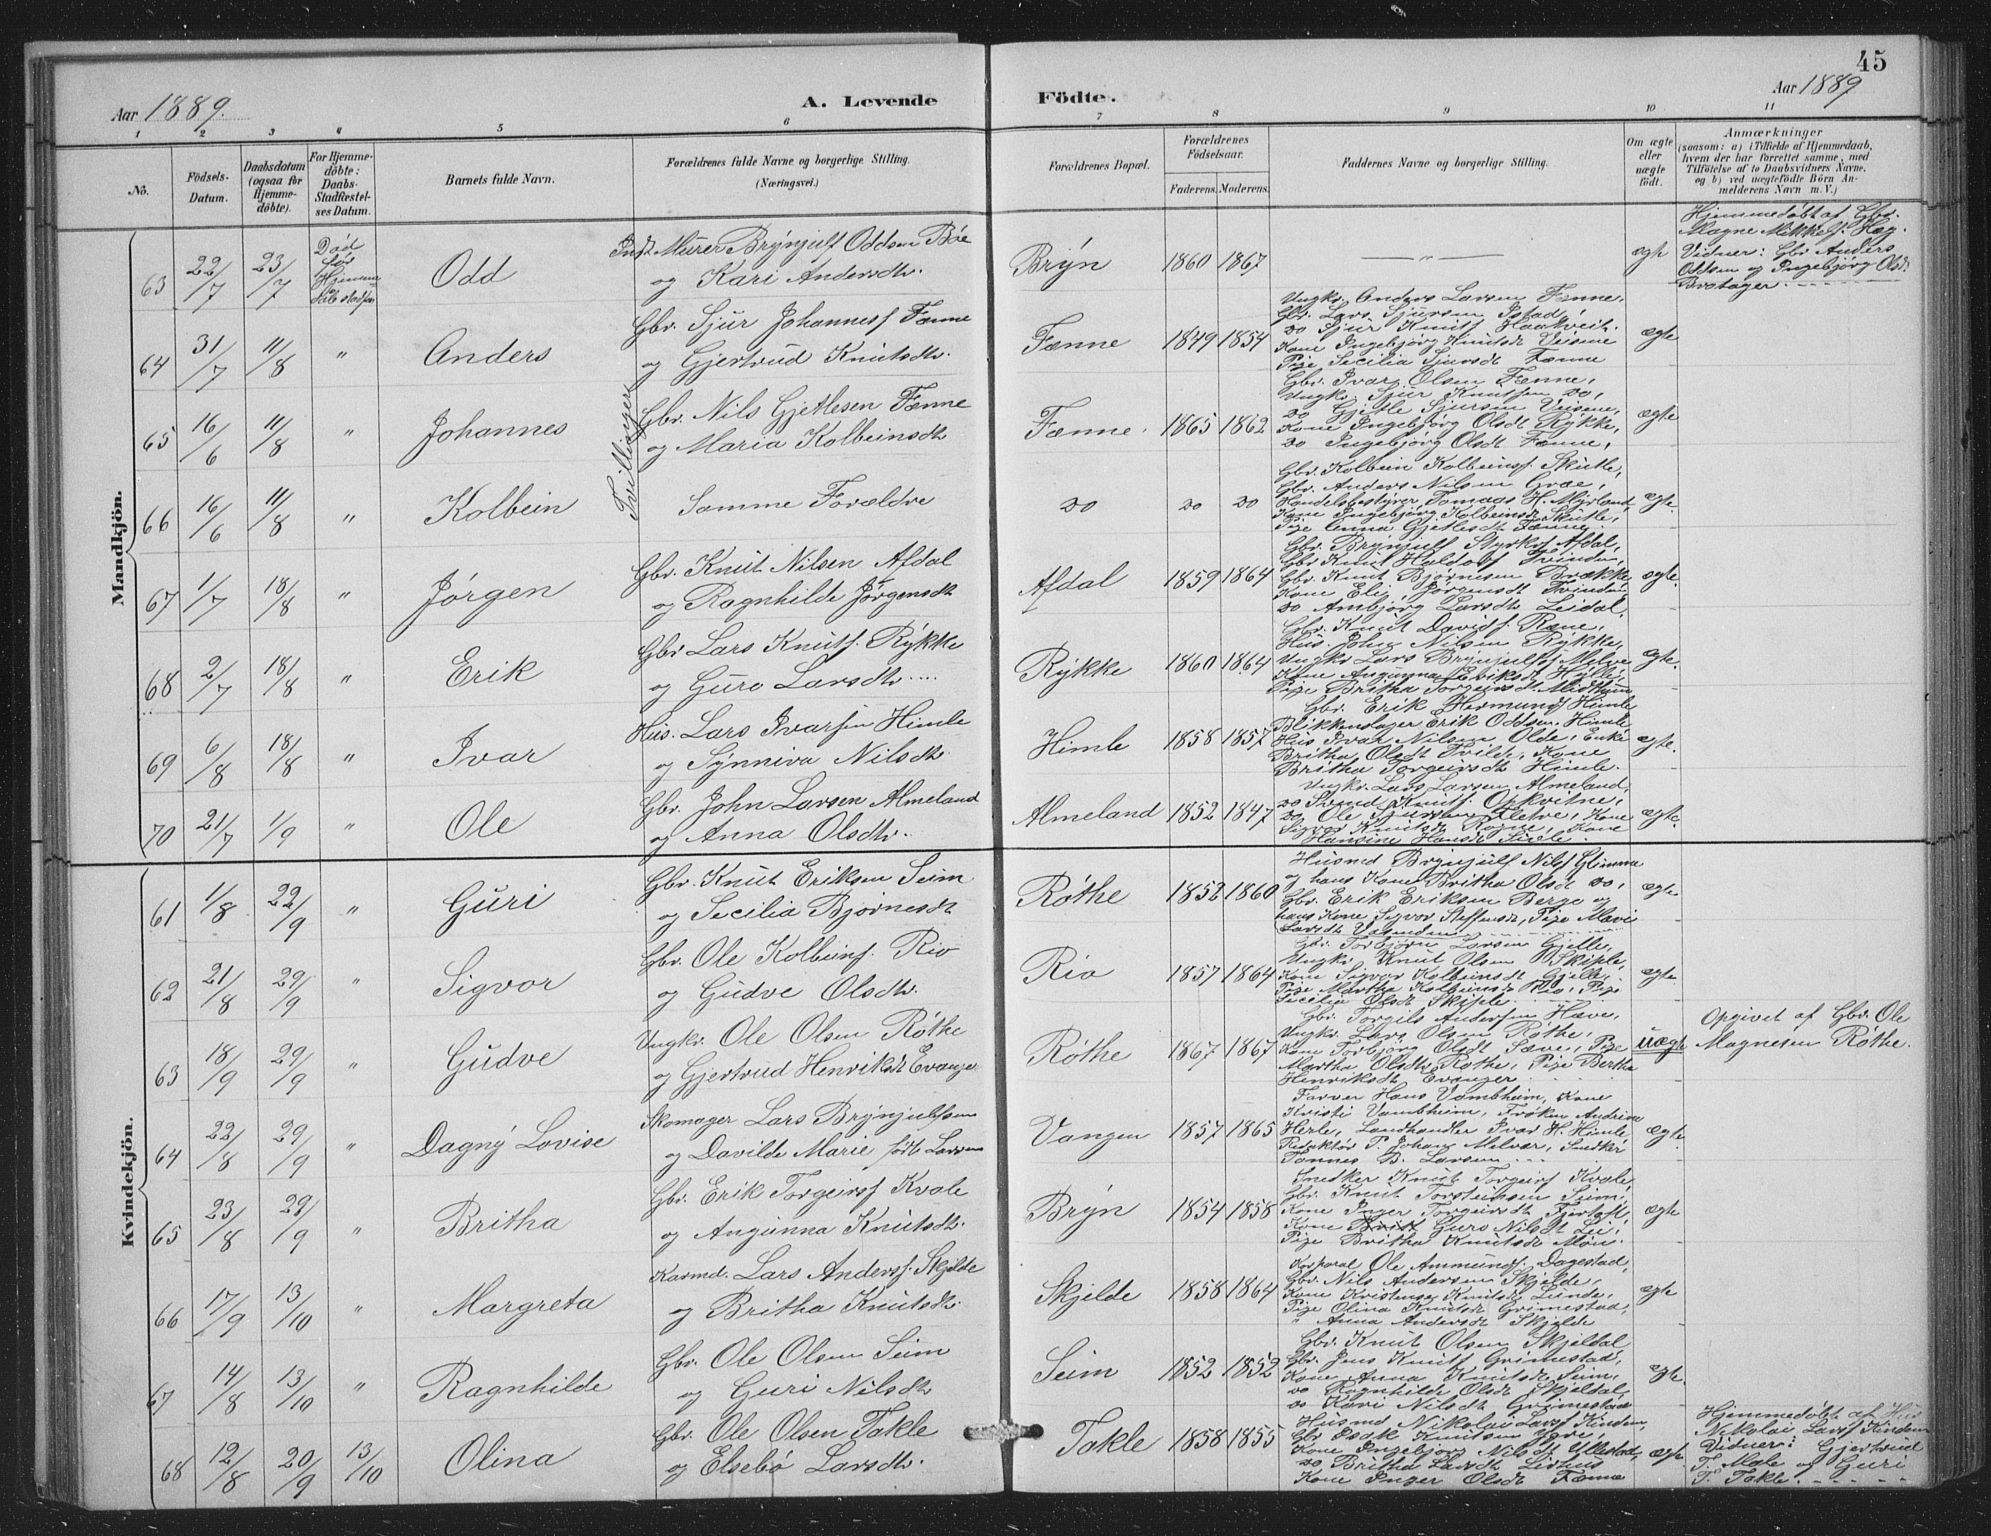 45
Aar 1889.
A. Levende
Födte.
Aar 1889
1 2 3 4 5 6 7 8 9 10 11
No.
Födsels-
Datum.
Daabsdatum
(ogsaa for
Hjemme-
döbte).
For Hjemme-
döbte:
Daabs-
Stadfæstel-
ses Datum.
Barnets fulde Navn.
Forældrenes fulde Navne og borgerlige Stilling.
(Næringsvei.)
Forældrenes Bopæl.
Forældrenes
Födselsaar.
Faderens. Moderens.
Faddernes Navne og borgerlige Stilling.
Om ægte
eller
uægte
födt.
Anmærkninger
(saasom: a) i Tilfælde af Hjemmedaab,
hvem der har forrettet samme, med
Tilföielse af to Daabsvidners Navne,
og b) ved uægtefödte Börn An-
melderens Navn m. V.)
Mandkjön.
63 22/7 23/7
Död
før
Hjemmed.
Stadf.
Odd
Murer Brynjulf Oddsen Bøe
og Kari Andersdtr.
Brýn 1860 1867 — „ — ægte
Hjemmedøbt af Gbr.
Magne Mikkels. Hæg.
Vidner: Gbr Anders
Oddsen og Ingebjørg Olsdt.
Brotager.
64 31/7 11/8 "
Anders
Gbr. Sjur Johannesf Fænne
og Gjertrud Knutsdtr.
Fænne 1849 1854
Ungkr. Anders Larsen Fænne.
Gbr. Lars Sjursen Istad,
do Sjur Knutf Haatveit.
Kone Ingebjørg Knutsdt Veisene
Pige Secilia Sjursdt Fænne
ægte
Tvillinger
65 16/6 11/8 "
Johannes
Gbr. Nils Gjetlesen Fænne
og Maria Kolbeinsdtr
Fænne. 1865 1862
Gbr. Ivar Olsen Fænne,
Ungk. Sjur Knutsen do,
do Gjetle Sjursen Veisene,
Kone Ingebjørg Olsdt Rykke,
do Ingebjørg Olsdt Fænne,
ægte
66 16/6 11/8 "
Kolbein
Samme Forældre
do do do
Gbr. Kolbein Kolbeinsf. Skutle,
Gbr. Anders Nilsen Græe,
Handelsbestyrer Tomaas H. Myrland,
Kone Ingebjørg Kolbeinsdt Skutle,
Pige Anna Gjetlesdt Fænne.
ægte.
67 1/7 18/8 "
Jørgen
Gbr. Knut Nilsen Afdal
og Ragnhilde Jørgensdtr
Afdal 1859 1864
Gbr. Brynjulf Styrksf Afdal,
Gbr Knut Haldosf Tvinden,
Gbr. Knut Bjørnesen Brække,
Kone Eli Jørgensdt Tvinden,
do Ambjørg Larsdt Leidal,
ægte.
68 2/7 18/8 "
Erik
Gbr Lars Knutf. Rykke
og Guro Larsdtr.
Rykke 1860 1864
Gbr. Knut Davidf Ræne,
Hus. John Nilsen Rykke,
Ungkr Lars Brynjulfsf Melve
Kone Angunna Eriksdt Hylle,
Pige Britha Torgeirsdt Midthun
ægte.
69 6/8 18/8 "
Ivar
Hus. Lars Ivarsen Himle
og Synniva Nilsdtr
Himle 1858 1857
Gbr. Erik Hermundf Himle
Blikkenslager Erik Oddsen Himle
Hus Ivar Nilsen Olde, Enke
Britha Olsdt Tvilde, Kone
Britha Torgeirsdt Himle.
ægte.
70 21/7 1/9 "
Ole
Gbr. John Larsen Almeland
og Anna Olsdtr.
Almeland 1852 1847
Ungkr. Lars Larsen Almeland,
do Svend Knutf. Opkvitne,
do Ole Sjursen Fletve, Kone
Sigvor Knutsdt Rogne, Kone
Hansine Hansdt
ægte.
Kvindekjön.
61 1/8 22/9 "
Guri
Gbr. Knut Eriksen Seim
og Secilia Bjørnesdtr
Røthe 1852 1860
Husmd Brynjulf Nilsf Glimma
og hans Kone Britha Olsdt do,
Gbr. Erik Eriksen Berge og
hans Kone Sigvor Steffensdt, Pige Mari
Larsdt
ægte.
62 21/8 29/9 "
Sigvor
Gbr. Ole Kolbeinf. Rio
og Gudve Olsdtr.
Rio 1857 1864
Gbr. Torbjørn Larsen Gjelle,
Ungkr. Knut Olsen Skiple,
Kone Sigvor Kolbeinsdt Gjelle,
Pige Martha Kolbeinsdt Rio, Pige
Secilia Olsdt Skiple.
ægte
63 18/9 29/9 "
Gudve
Ungkr. Ole Olsen Røthe
og Gjertrud Henriksdt Evanger
Røthe 1867 1867
Gbr. Torgils Andersen Hæve,
Ungkr. Lars Olsen Røthe,
Kone Torbjørg Olsdt Sæve, Pige
Martha Olsdt Røthe, Pige Bertha
Henriksdt Evanger
uægte
Opgivet af Gbr. Ole
Magnesen Røthe.
64 22/8 29/9 "
Dagný Lovise
Skomager Lars Brynjulfsen
og Davilde Marie født Larsen
Vangen 1857 1865
Farver Hans Vambheim, Kone
Kristi Vambheim, Frøken Andrine
Herle, Landhandler Ivar H. Himle
Redaktør P. Johans Melvær, Snedker
Tønnes B. Larsen
ægte.
65 23/8 29/9 "
Britha
Gbr. Erik Torgeirsf Kvale
og Angunna Knutsdtr.
Brýn 1854 1858
Snedker Knut Torgeirf Kvale,
Gbr. Knut Torsteinsen Seim,
Kone Inger Torgeirsdt Fjertoft,
Kone Guro Nilsdt Lei,
Pige Britha Knutsdt Møn.
ægte
66 17/9 13/10 "
Margreta
Kaarmd. Lars Andersf. Skjelde
og Britha Knutsdtr.
Skjelde 1858 1864
Korporal Ole Ammundf. Dagestad,
Gbr. Nils Andersen Skjelde,
Kone Kristense Knutsdt Linde,
Pige Olina Knutsdt Grimestad,
" Anna Andersdt Skjelde
ægte
67 14/8 13/10 "
Ragnhilde
Gbr. Ole Olsen Seim
og Guri Nilsdtr
Seim 1852 1852
Gbr. Knut Olsen Skjeldal
Gbr. Jens Knutf Grimestad,
Kone Anna Knutsdt Seim,
do Ragnhilde Olsdt Skjeldal,
do Kari Nilsdt Grimestad
ægte.
68 12/8 20/9 13/10
Olina
Gbr. Ole Olsen Takle
og Elsebø Larsdtr.
Takle 1858 1855
Husmd Nikolai Larsf Kinden,
Gbr Isak Knutsen
Kone Ingebjørg Nilsdt Ullestad,
do Britha Larsdt Lirhus
Kone Inger Olsdt Fænne
ægte.
Hjemmedøbt af Hus
Nikolai Larsf Kinden
Vidner: Gjertrud
T. Male og Guri
T. Takle.